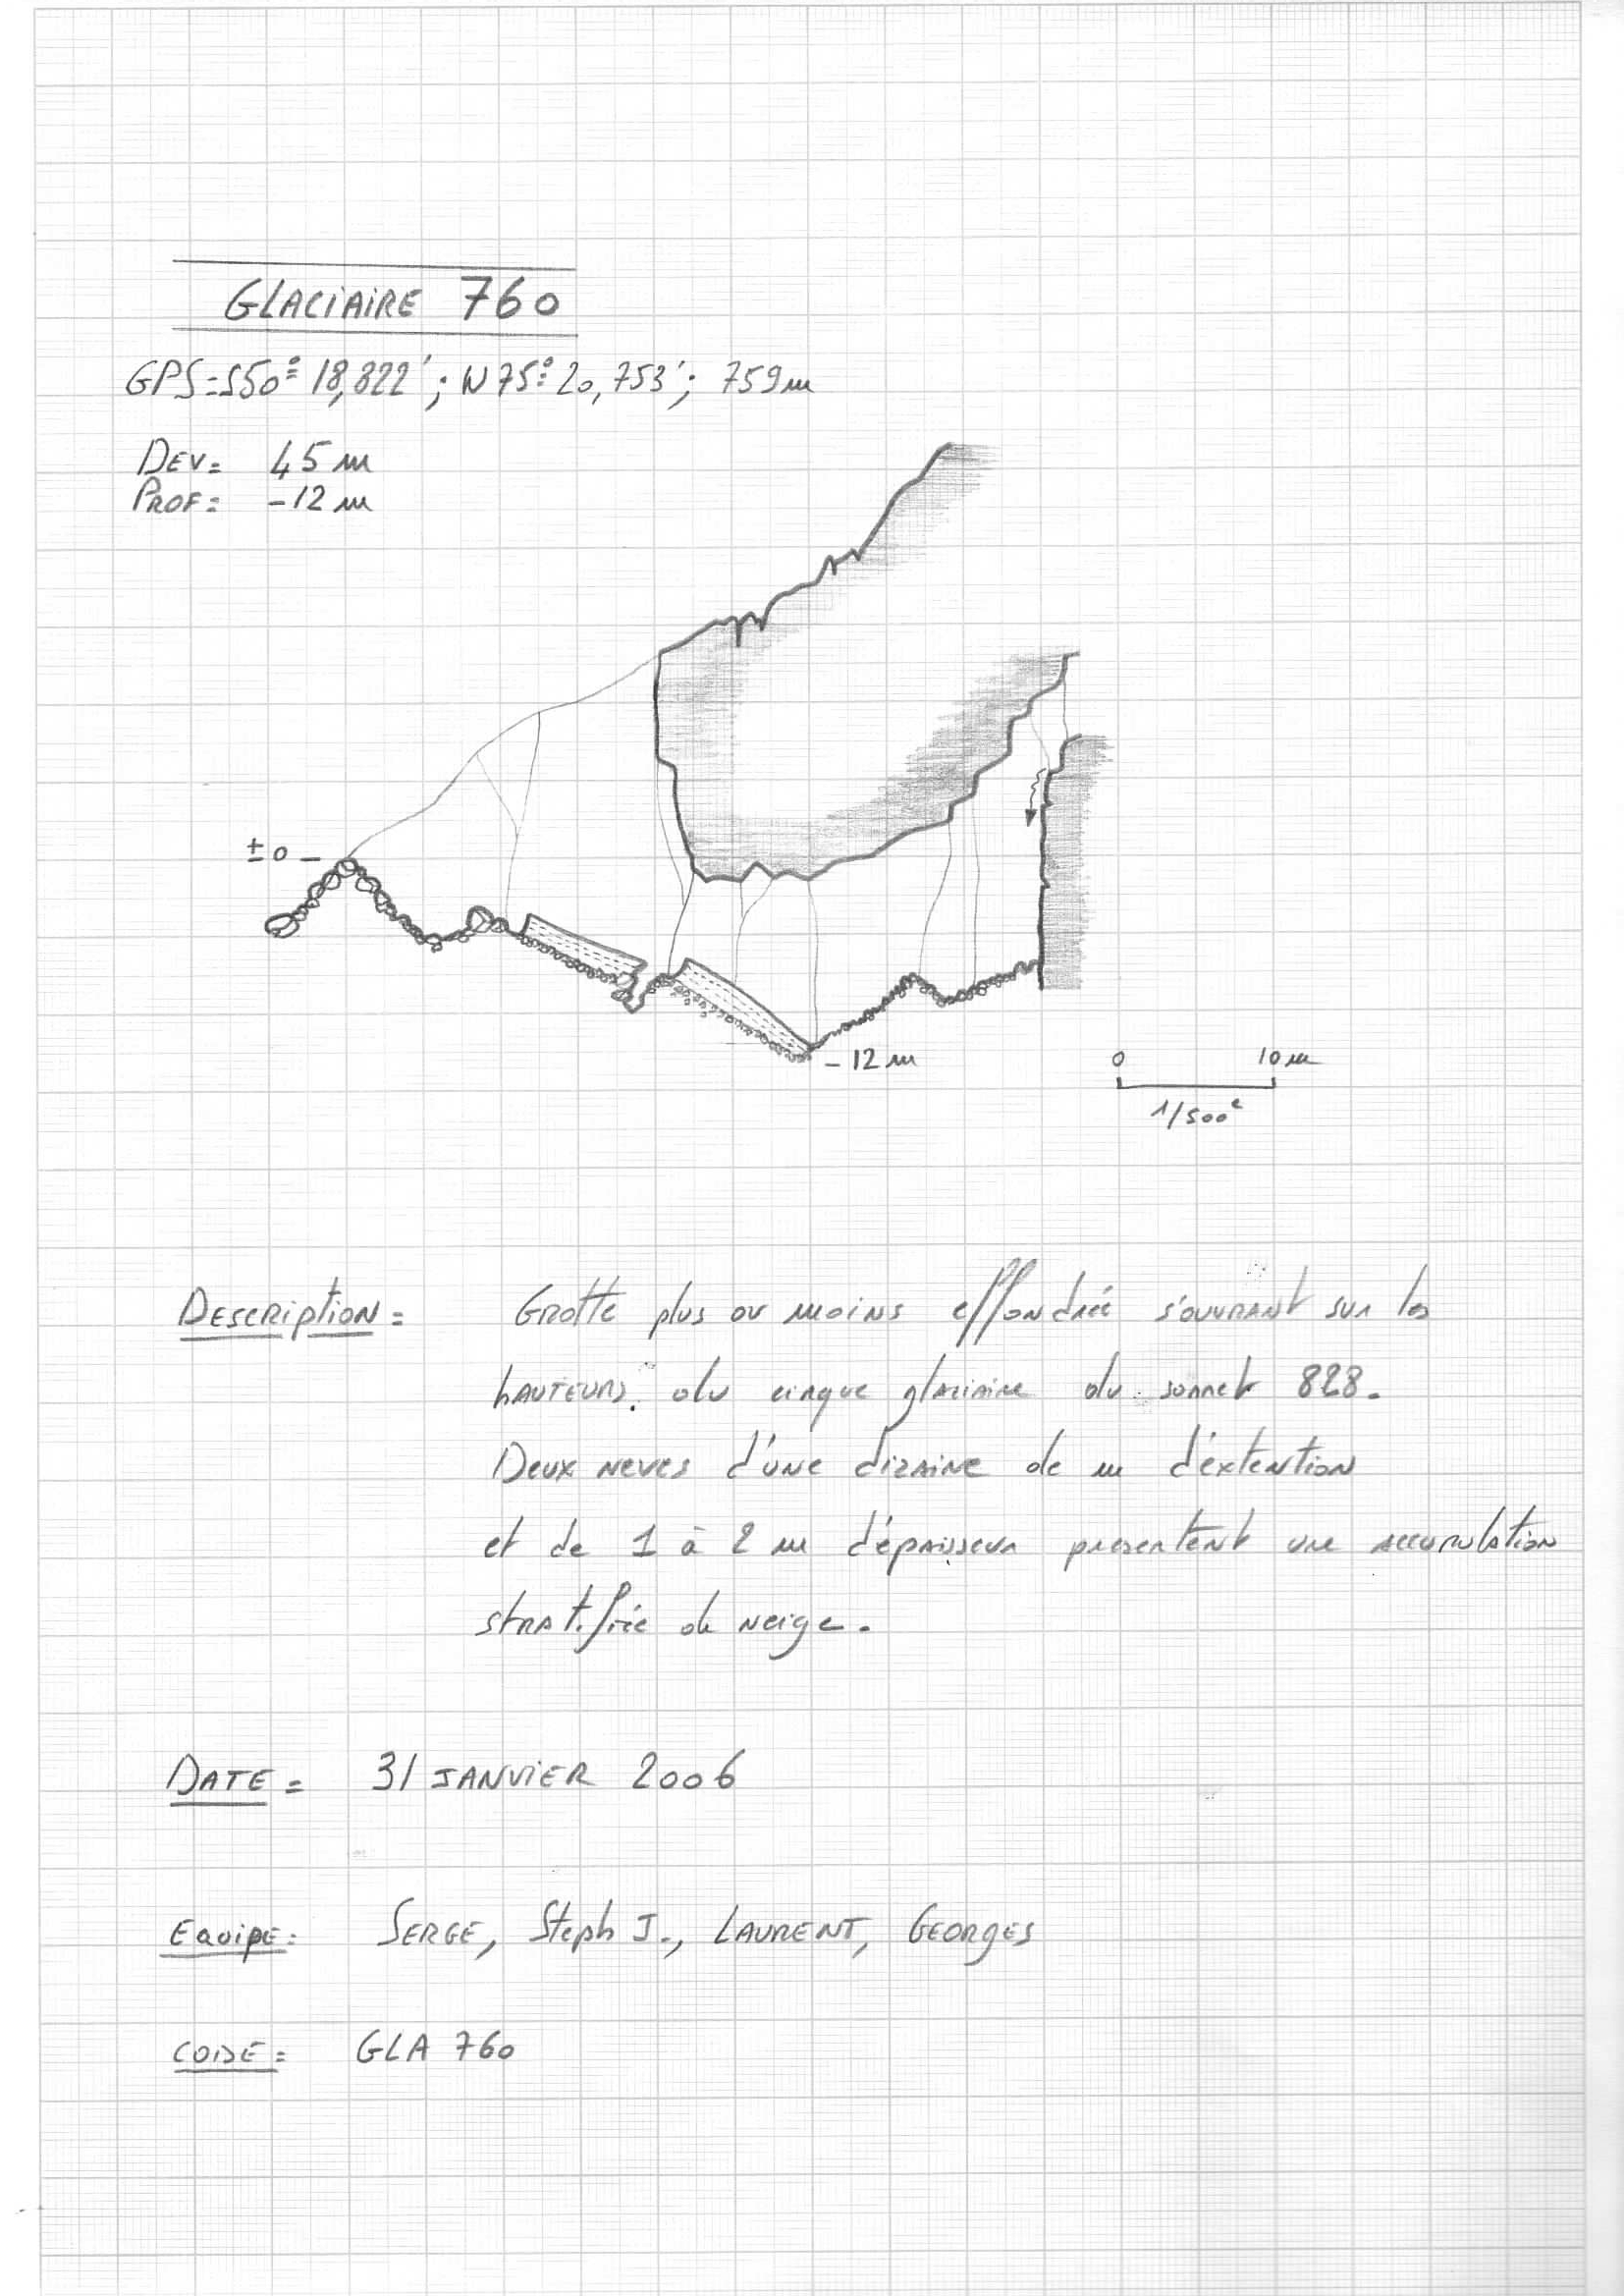 GLACIAIRE 760
GPS=S50° 18,822' ; W75° 20,753' ; 759m
DEV= 45 m
PROF= -12 m
± 0 –
– 12 m
0 10 m
1/500e
DESCRIPTION = GROTTE plus ou moins effondrée s'ouvrant sur les
hauteurs du cirque glaciaire du sommet 828.
Deux neves d'une dizaine de m d'extention
et de 1 à 2 m d'épaisseur presentent une accumulation
stratifiée de neige.
DATE = 31 JANVIER 2006
Equipe: SERGE, Steph J., LAURENT, GEORGES
CODE= GLA 760